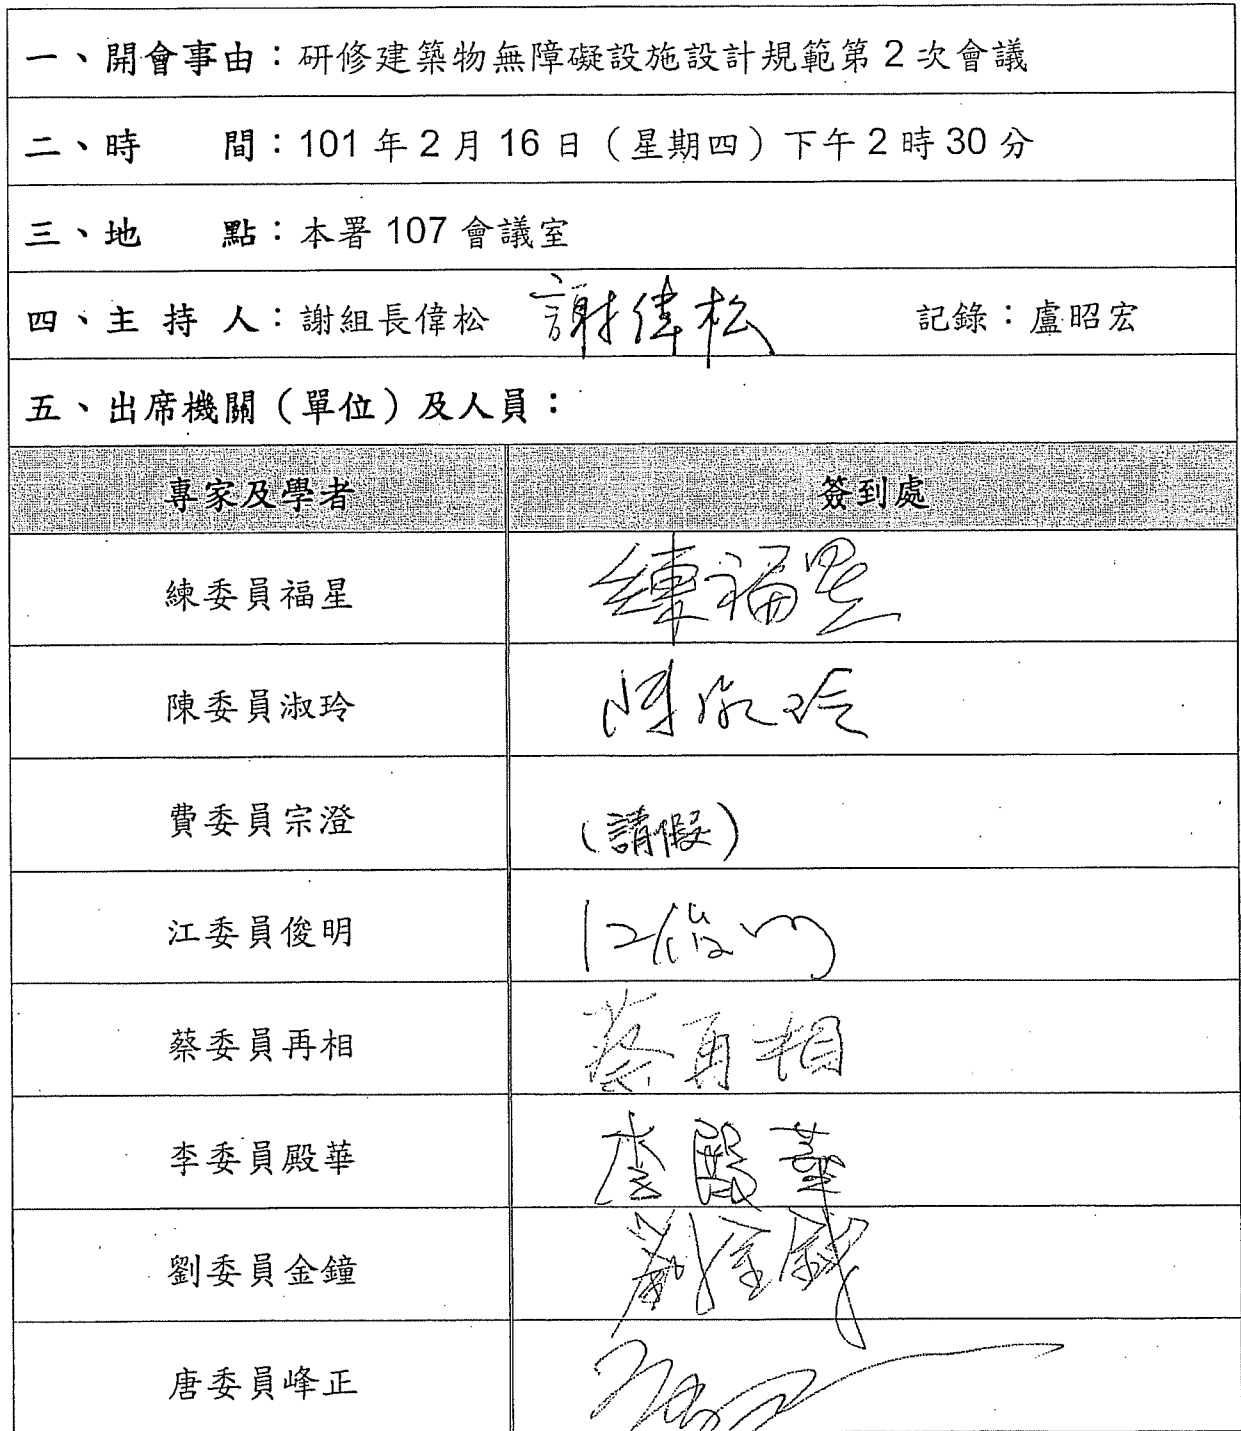 一、開會事由：研修建築物無障礙設施設計規範第2次會議
二、時　　間：101年2月16日（星期四）下午2時30分
三、地　　點：本署107會議室
四、主 持 人：謝組長偉松 謝偉松 記錄：盧昭宏
五、出席機關（單位）及人員：
專家及學者 簽到處
練委員福星 練福星
陳委員淑玲 陳淑玲
費委員宗澄 （請假）
江委員俊明 江俊明
蔡委員再相 蔡再相
李委員殿華 李殿華
劉委員金鐘 劉金鐘
唐委員峰正